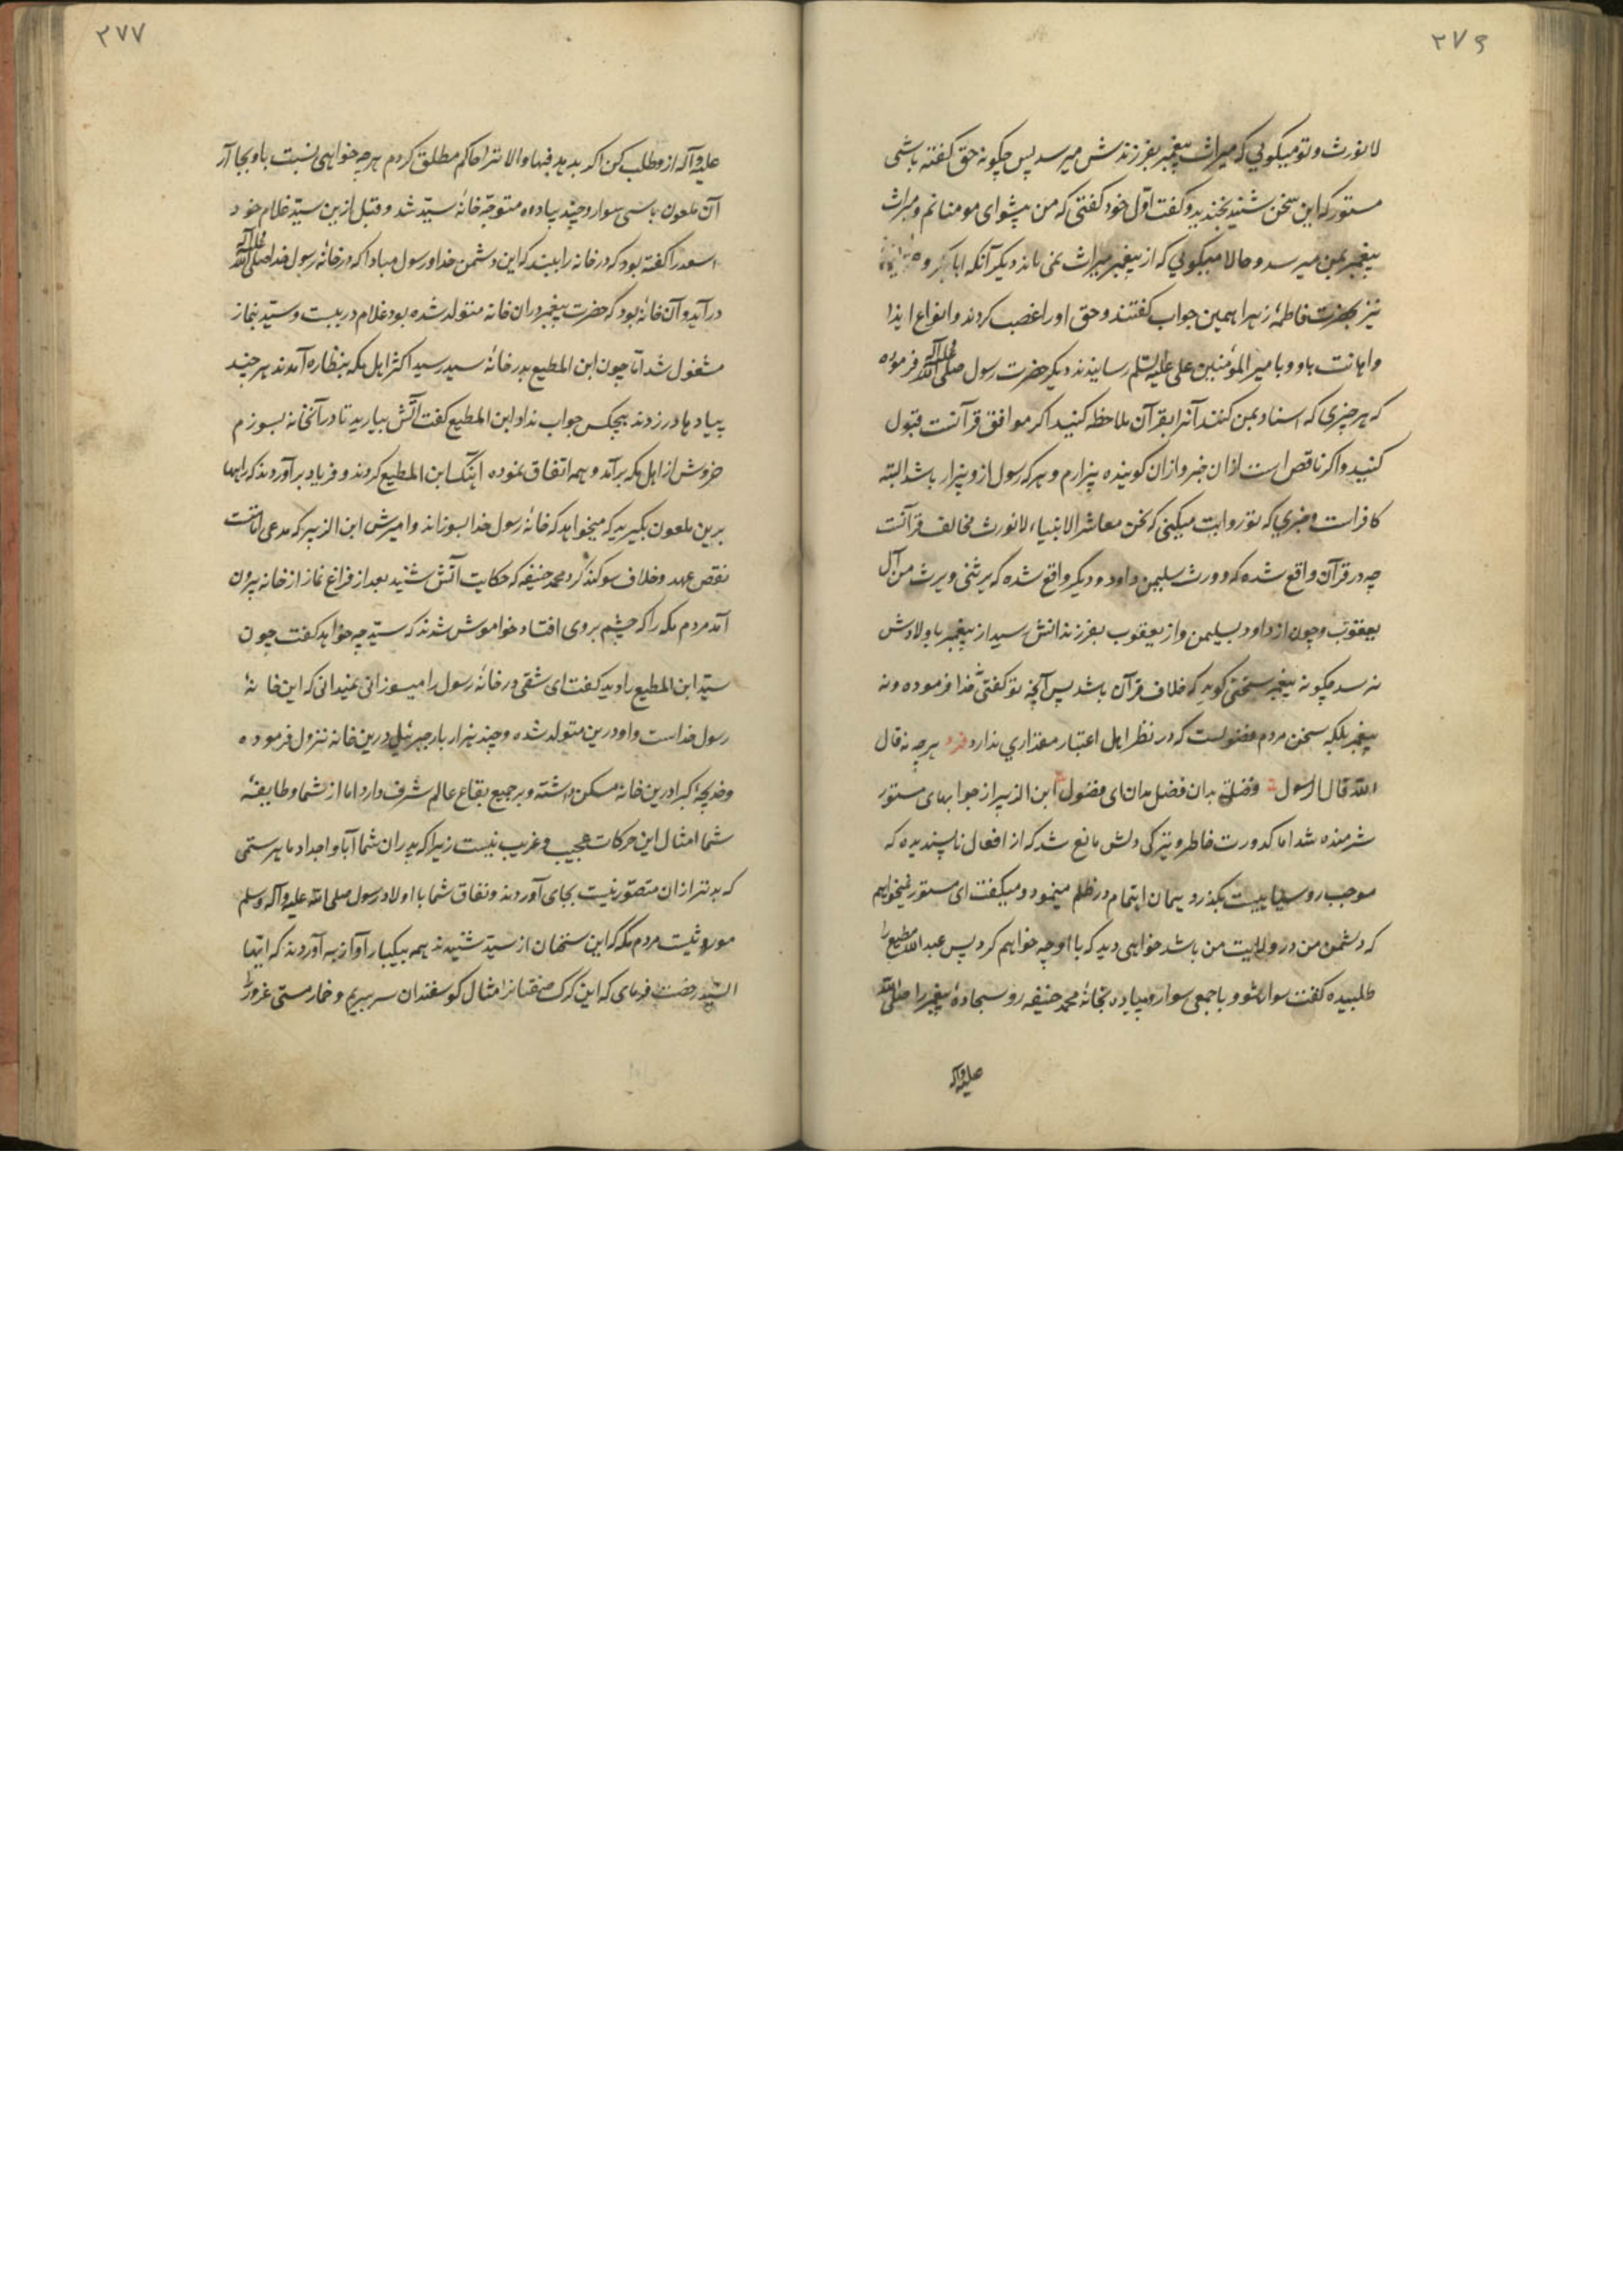 ۲۷۶
لا نورث و تو میکویی که میراث پیغمبر بفرزندش میرسد پس چکونه حق کفته باشی
مستور که این سخن شنید بخندید و کفت اوّل خود کفتی که من پیشوای مومنانم و میراث
پیغمبر بمن میرسد و حالا میکویی که از پیغمبر میراث نمی ماند دیکر آنکه ابابکر و
نیز بحضرت فاطمهٔ زهرا همین جواب کفتند و حق او را غصب کردند و انواع ایذا
و اهانت باو و با امیر المؤمنین علی علیه السلم رسانیدند دیکر حضرت رسول صلی الله علیه و آله فرموده
که هر چیزی که اسناد بمن کنند آنرا بقرآن ملاحظه کنید اکر موافق قرآنست قبول
کنید و اکر ناقص است ازان خبر و ازان کوینده بیزارم و هر که رسول ازو بیزار باشد البته
کافر است و خبری که تو روایت میکنی که نحن معاشر الانبیاء لا نورث مخالف قرآنست
چه در قرآن واقع شده که و ورث سلیمن داود و دیکر واقع شده که یرثنی و یرث من آل
یعقوب و چون از داود بسلیمن و از یعقوب بفرزندانش رسید از پیغمبر باولادش
نرسد چکونه پیغمبر سخنی کوید که خلاف قرآن باشد پس آنچه تو کفتی نه خدا فرموده و نه
پیغمبر بلکه سخن مردم فضولست که در نظر اهل اعتبار مقداری ندارد فرد هر چه نه قال
الله قال الرسول فضله بدان فضل بدان ای فضول ابن الزبیر از جوابهای مستور
شرمنده شد اما کدورت خاطر و تیرکی دلش مانع شد که از افعال ناپسندیده که
موجب روسیاهیست بکذرد همان اهتمام در ظلم مینمود و میکفت ای مستور نمیخواهم
که دشمن من در ولایت من باشد خواهی دید که با او چه خواهم کرد پس عبد الله مطیع را
طلبیده کفت سوار شو و با جمعی سوار و پیاده بخانهٔ محمد حنیفه رو و سجادهٔ پیغمبر را صلی الله
علیه و آله
۲۷۷
علیه و آله ازو طلب کن اکر بدهد فبها و الا ترا حاکم مطلق کردم هر چه خواهی نسبت باو بجا آر
آن ملعون با سی سوار و چند پیاده متوجّه خانهٔ سیّد شد و قبل ازین سیّد غلام خود
اسعد را کفته بود که در خانه را ببند که این دشمن خدا و رسول مبادا که در خانهٔ رسول خدا صلی الله علیه و آله
درآید و آن خانهٔ بود که حضرت پیغمبر در ان خانه متولد شده بود غلام در ببست و سیّد بنماز
مشغول شد امّا چون ابن المطیع بدر خانهٔ سید رسید اکثر اهل مکه بنظاره آمدند هر چند
پیادها در زدند هیچکس جواب نداد ابن المطیع کفت آتش بیارید تا در آنخانه بسوزم
خروش از اهل مکه برآمد و همه اتفاق نموده آهنک ابن المطیع کردند و فریاد برآوردند که راهها
برین ملعون بکیرید که میخواهد که خانهٔ رسول خدا بسوزاند و امیرش ابن الزبیر که مدعی امامت
نقض عهد و خلاف سوکند کرد محمد حنیفه که حکایت آتش شنید بعد از فراغ نماز از خانه بیرون
آمد مردم مکه را که چشم بر وی افتاد خواموش شدند که سیّد چه خواهد کفت چون
سیّد ابن المطیع را دید کفت ای شقی در خانهٔ رسول را میسوزانی نمیدانی که این خانهٔ
رسول خداست و او درین متولد شده و چند هزار بار جبرئیل درین خانه نزول فرموده
و خدیجهٔ کبرا درین خانه مسکن داشته و بر جمیع بقاع عالم شرف دارد اما از شما و طایفهٔ
شما امثال این حرکات عجیب و غریب نیست زیرا که پدران شما آبا و اجداد ما هر ستمی
که بدتر ازان متصوّر نیست بجای آوردند و نفاق شما با اولاد رسول صلی الله علیه و آله و سلم
موروثیست مردم مکه که این سخنان از سیّد شنیدند همه بیکبار آواز برآوردند که ایها
السّید رخصت فرمای که این کرک صفتانرا مثال کوسفندان سر ببریم و خمار مستی غرور را